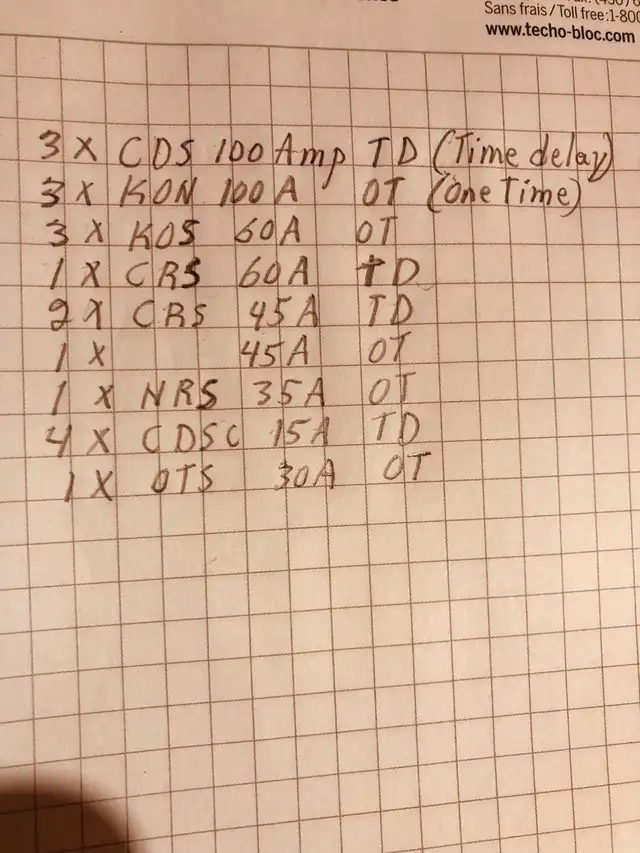 Sans frais/Toll free:1-800
www.techo-bloc.com
3 X CDS 100 Amp TD (Time delay)
3 X KON 100 A OT (One Time)
3 X KOS 60A OT
1 X CRS 60A TD
2 X CRS 45A TD
1 X 45A OT
1 X NRS 35A OT
4 X CDSC 15A TD
1 X OTS 30A OT